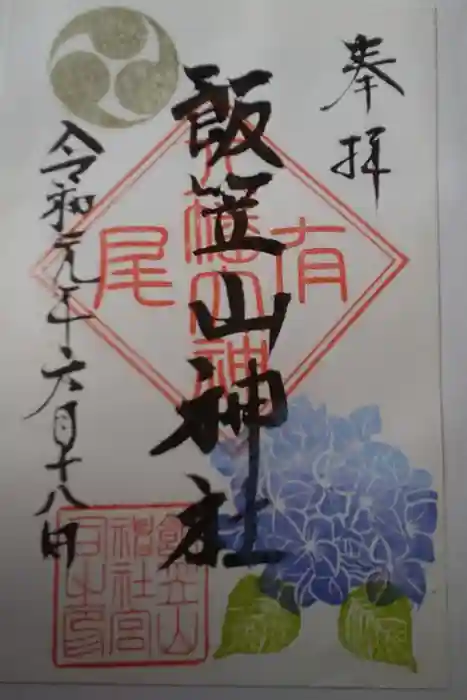 奉拝
飯笠山神社
令和元年六月十八日
有
八幡大神
尾
飯笠山
神社宮
司之印